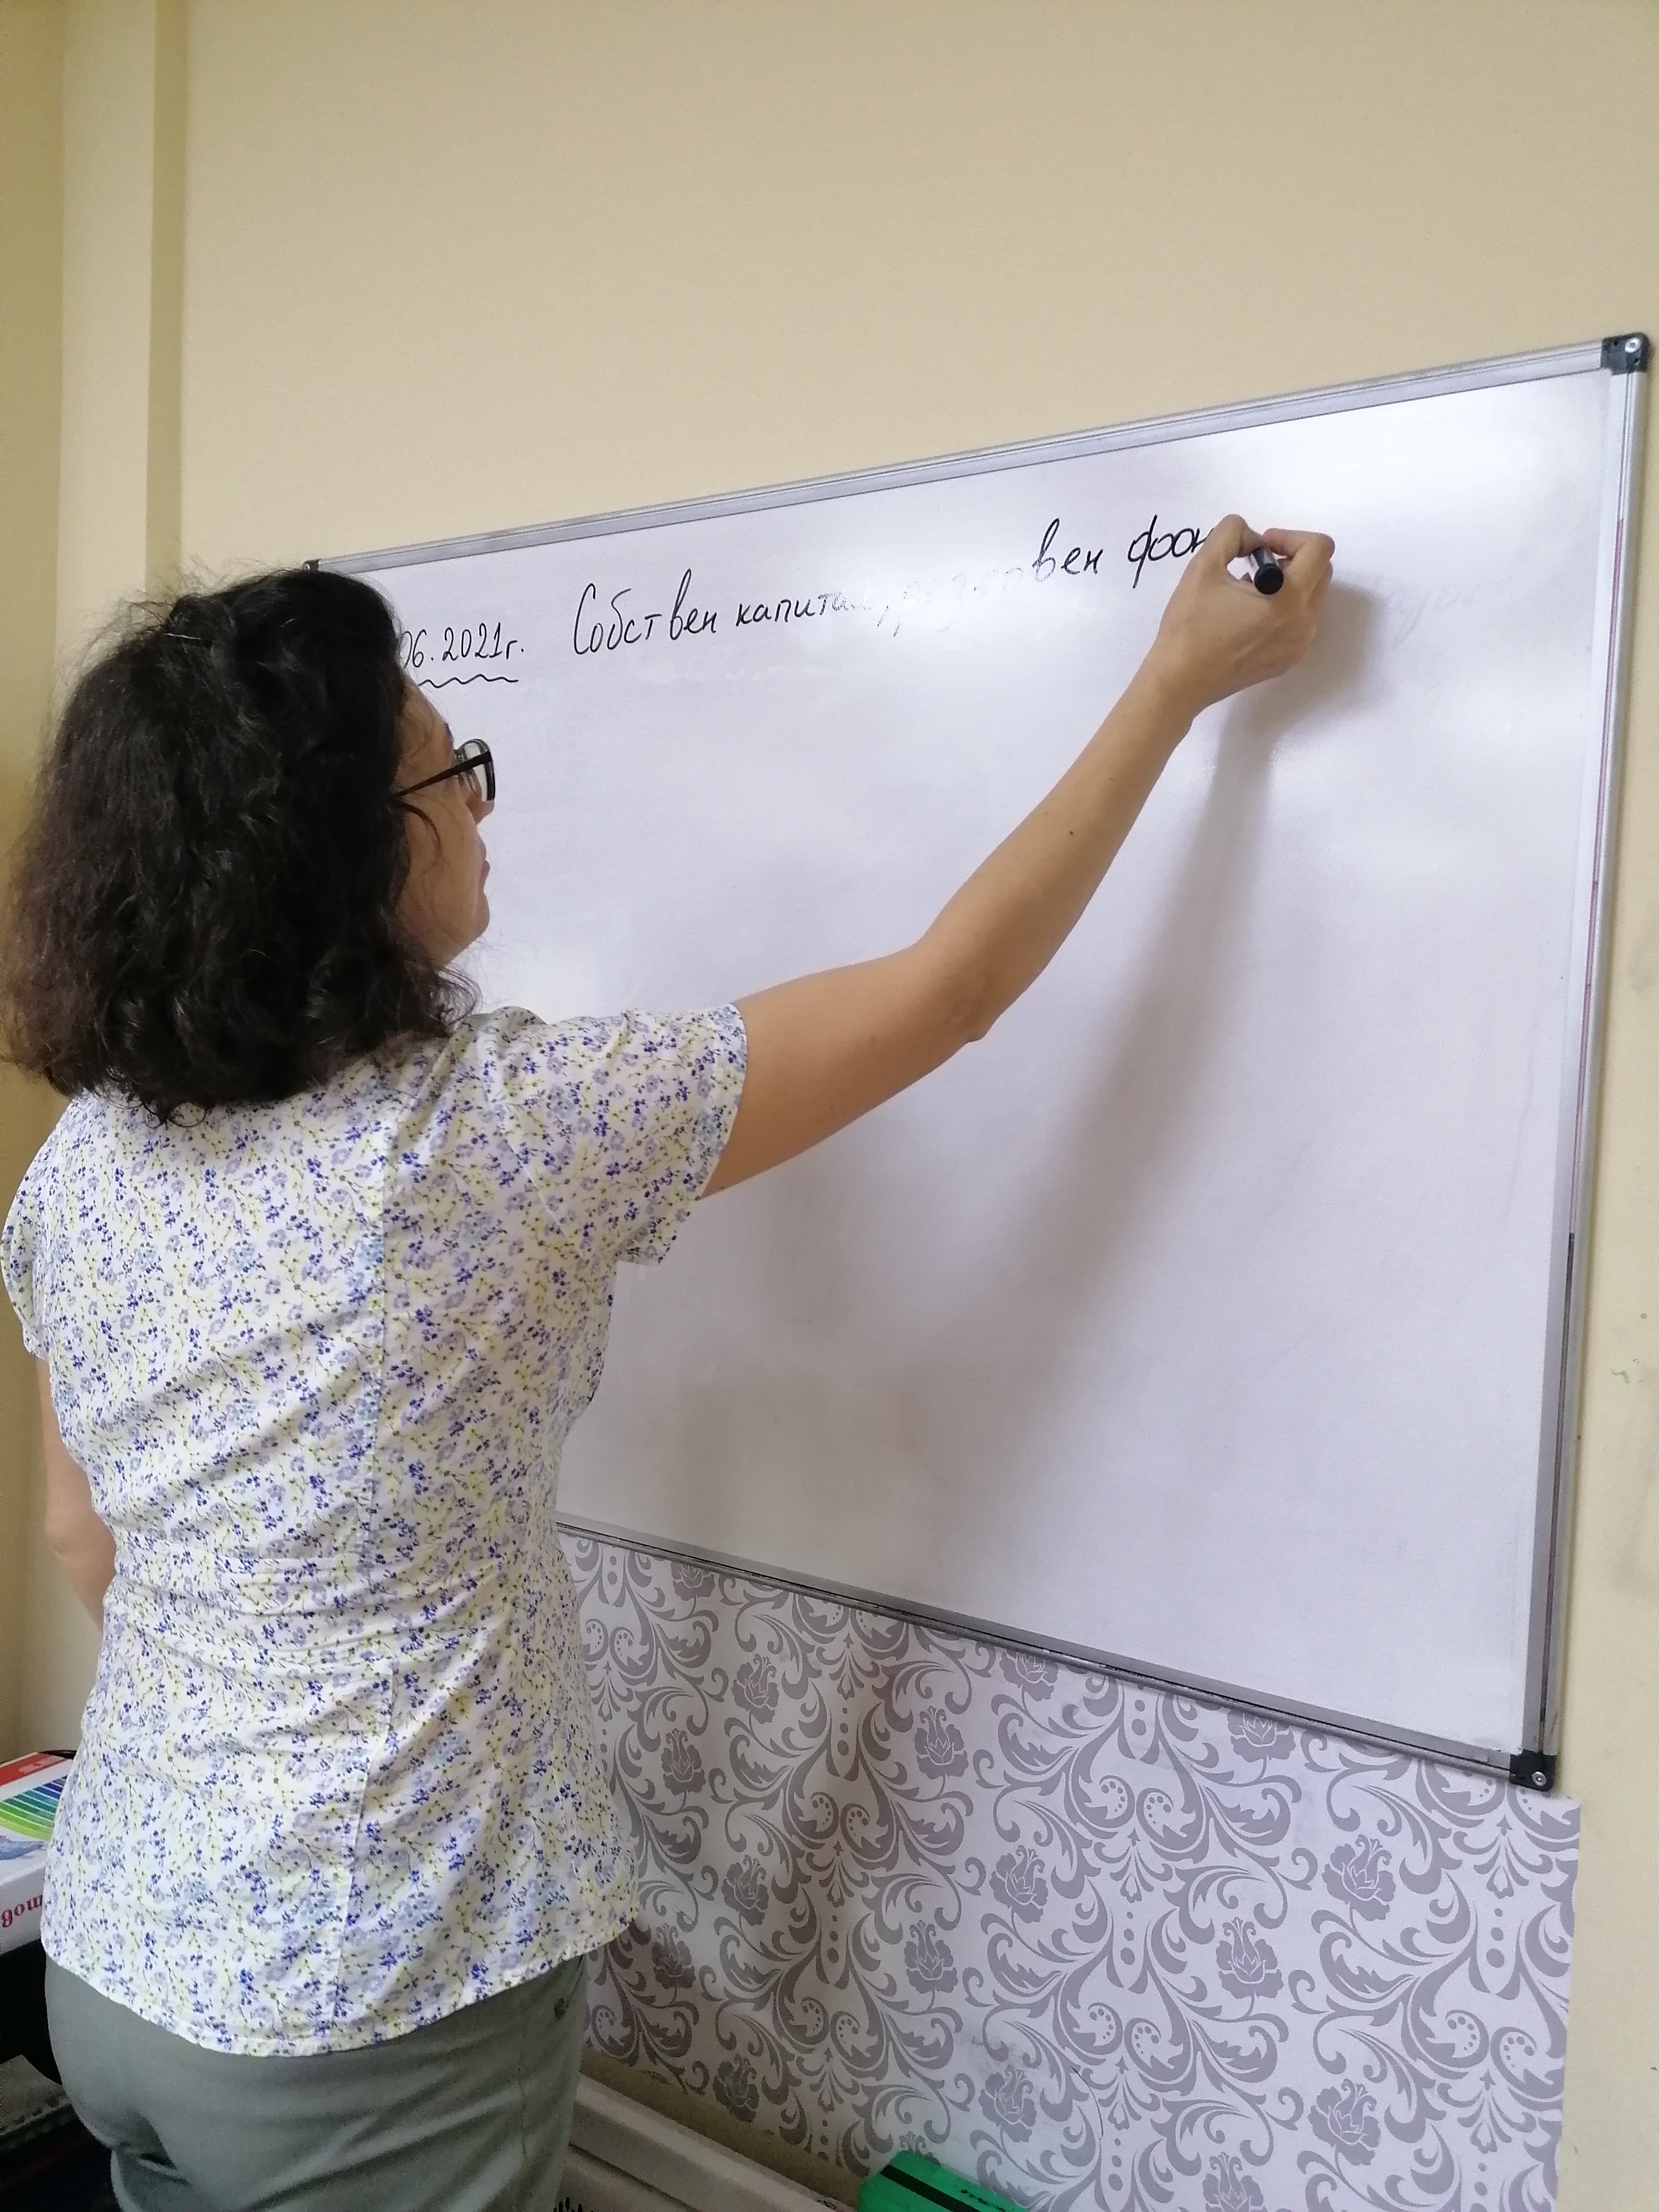 06.2021г. Собствен капитал, резервен фон
тов